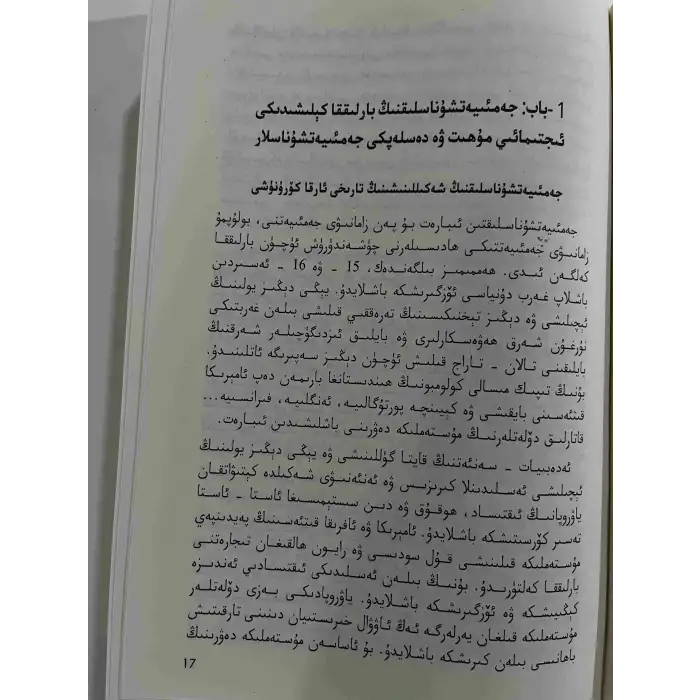 1 -باب: جەمئىيەتشۇناسلىقنىڭ بارلىققا كېلىشىدىكى
ئىجتىمائىي مۇھىت ۋە دەسلەپكى جەمئىيەتشۇناسلار
جەمئىيەتشۇناسلىقنىڭ شەكىللىنىشىنىڭ تارىخى ئارقا كۆرۈنۈشى
جەمئىيەتشۇناسلىقتىن ئىبارەت بۇ پەن زامانىۋى جەمئىيەتنى، بولۇپمۇ
زامانىۋى جەمئىيەتتىكى ھادىسىلەرنى چۈشەندۈرۈش ئۈچۈن بارلىققا
كەلگەن ئىدى. ھەممىمىز بىلگەندەك، 15 - ۋە 16 - ئەسىردىن
باشلاپ غەرب دۇنياسى ئۆزگىرىشكە باشلايدۇ. يېڭى دېڭىز يولىنىڭ
ئېچىلىشى ۋە دېڭىز تېخنىكىسىنىڭ تەرەققىي قىلىشى بىلەن غەربتىكى
نۇرغۇن شەرق ھەۋەسكارلىرى ۋە بايلىق ئىزدىگۈچىلەر شەرقنىڭ
بايلىقىنى تالان - تاراج قىلىش ئۈچۈن دېڭىز سەپىرىگە ئاتلىنىدۇ.
بۇنىڭ تىپىك مىسالى كولومبونىڭ ھىندىستانغا بارىمەن دەپ ئامېرىكا
قىتئەسىنى بايقىشى ۋە كېيىنچە پورتۇگالىيە، ئەنگلىيە، فىرانسىيە...
قاتارلىق دۆلەتلەرنىڭ مۇستەملىكە دەۋرىنى باشلىشىدىن ئىبارەت.
ئەدەبىيات - سەنئەتنىڭ قايتا گۈللىنىشى ۋە يېڭى دېڭىز يولىنىڭ
ئېچىلىشى ئەسلىدىنلا كىرىزىس ۋە ئەنئەنىۋى شەكىلدە كېتىۋاتقان
ياۋروپانىڭ ئىقتىساد، ھوقۇق ۋە دىن سىستېمىسىغا ئاستا - ئاستا
تەسىر كۆرسىتىشكە باشلايدۇ. ئامېرىكا ۋە ئافرىقا قىتئەسىنىڭ پەيدىنپەي
مۇستەملىكە قىلىنىشى قۇل سودىسى ۋە رايون ھالقىغان تىجارەتنى
بارلىققا كەلتۈرىدۇ. بۇنىڭ بىلەن ئەسلىدىكى ئىقتىسادىي ئەندىزە
كېڭىيىشكە ۋە ئۆزگىرىشكە باشلايدۇ. ياۋروپادىكى بەزى دۆلەتلەر
مۇستەملىكە قىلغان يەرلەرگە ئەڭ ئاۋۋال خىرىستىيان دىنىنى تارقىتىش
باھانىسى بىلەن كىرىشكە باشلايدۇ. بۇ ئاساسەن مۇستەملىكە دەۋرىنىڭ
17